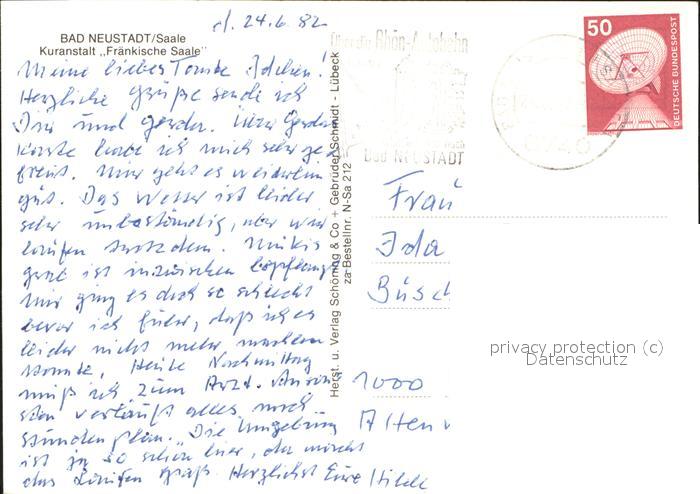 d. 24.6.82
BAD NEUSTADT/Saale
Kuranstalt „Fränkische Saale"
Meine liebe Tante Idchen!
Herzliche Grüße sende ich
Dir und Gerda. Über Gerdas
Karte habe ich mich sehr ge-
freut. Mir geht es weiterhin
gut. Das Wetter ist leider
sehr unbeständig, aber wir
laufen trotzdem.
grab ist inzwischen bepflanzt
Mir ging es doch so schlecht
bevor ich fuhr, daß ich es
leider nicht mehr machen
konnte. Heute Nachmittag
muß ich zum Arzt. Ansonsten
verläuft alles nach
Stundenplan. Die Umgebung
ist ja so schön hier, da macht
das Laufen Spaß. Herzlichst Eure Hilde
Herst. u. Verlag Schöning & Co + Gebrüder Schmidt · Lübeck
zu Bestellnr. N-Sa 212
Rhön-Autobahn
nach
Bad NEUSTADT
8740
50
DEUTSCHE BUNDESPOST
Frau
Ida
Büsch
1000
Alten
privacy protection (c)
Datenschutz